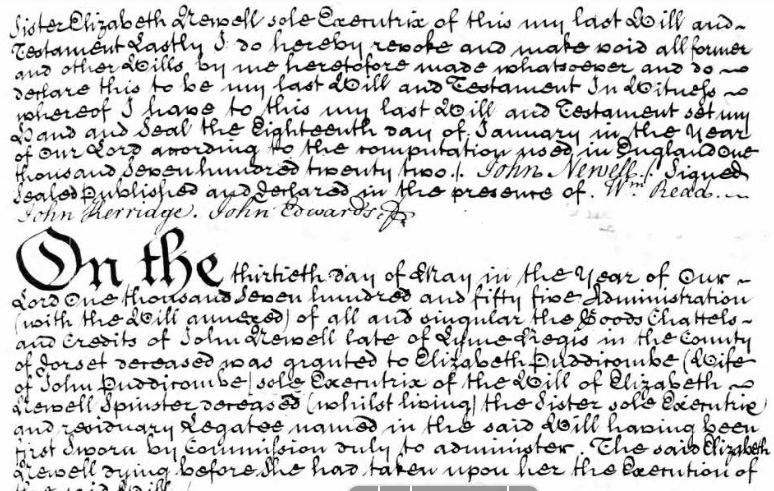 Sister Elizabeth Newell sole Executrix of this my last Will and
Testament Lastly I do hereby revoke and make void all former
and other Wills by me heretofore made whatsoever and do
declare this to be my last Will and Testament In Witness
whereof I have to this my last Will and Testament set my
Hand and Seal the Eighteenth day of January in the Year
of Our Lord according to the computation used in England One
thousand Seven hundred twenty two /. John Newell /. Signed
Sealed Published and declared in the presence of. Wm Read
John Kerridge. John Edwards Jr
On the thirtieth day of May in the Year of Our
Lord One thousand Seven hundred and fifty five Administration
(with the Will annexed) of all and singular the Goods Chattels
and Credits of John Newell late of Lyme Regis in the County
of Dorset deceased was granted to Elizabeth Puddicombe (Wife
of John Puddicombe) sole Executrix of the Will of Elizabeth
Newell Spinster deceased (whilst living) the Sister sole Executrix
and residuary Legatee named in the said Will having been
first sworn by Commission duly to administer. The said Elizabeth
Newell dying before she had taken upon her the Execution of
the said Will